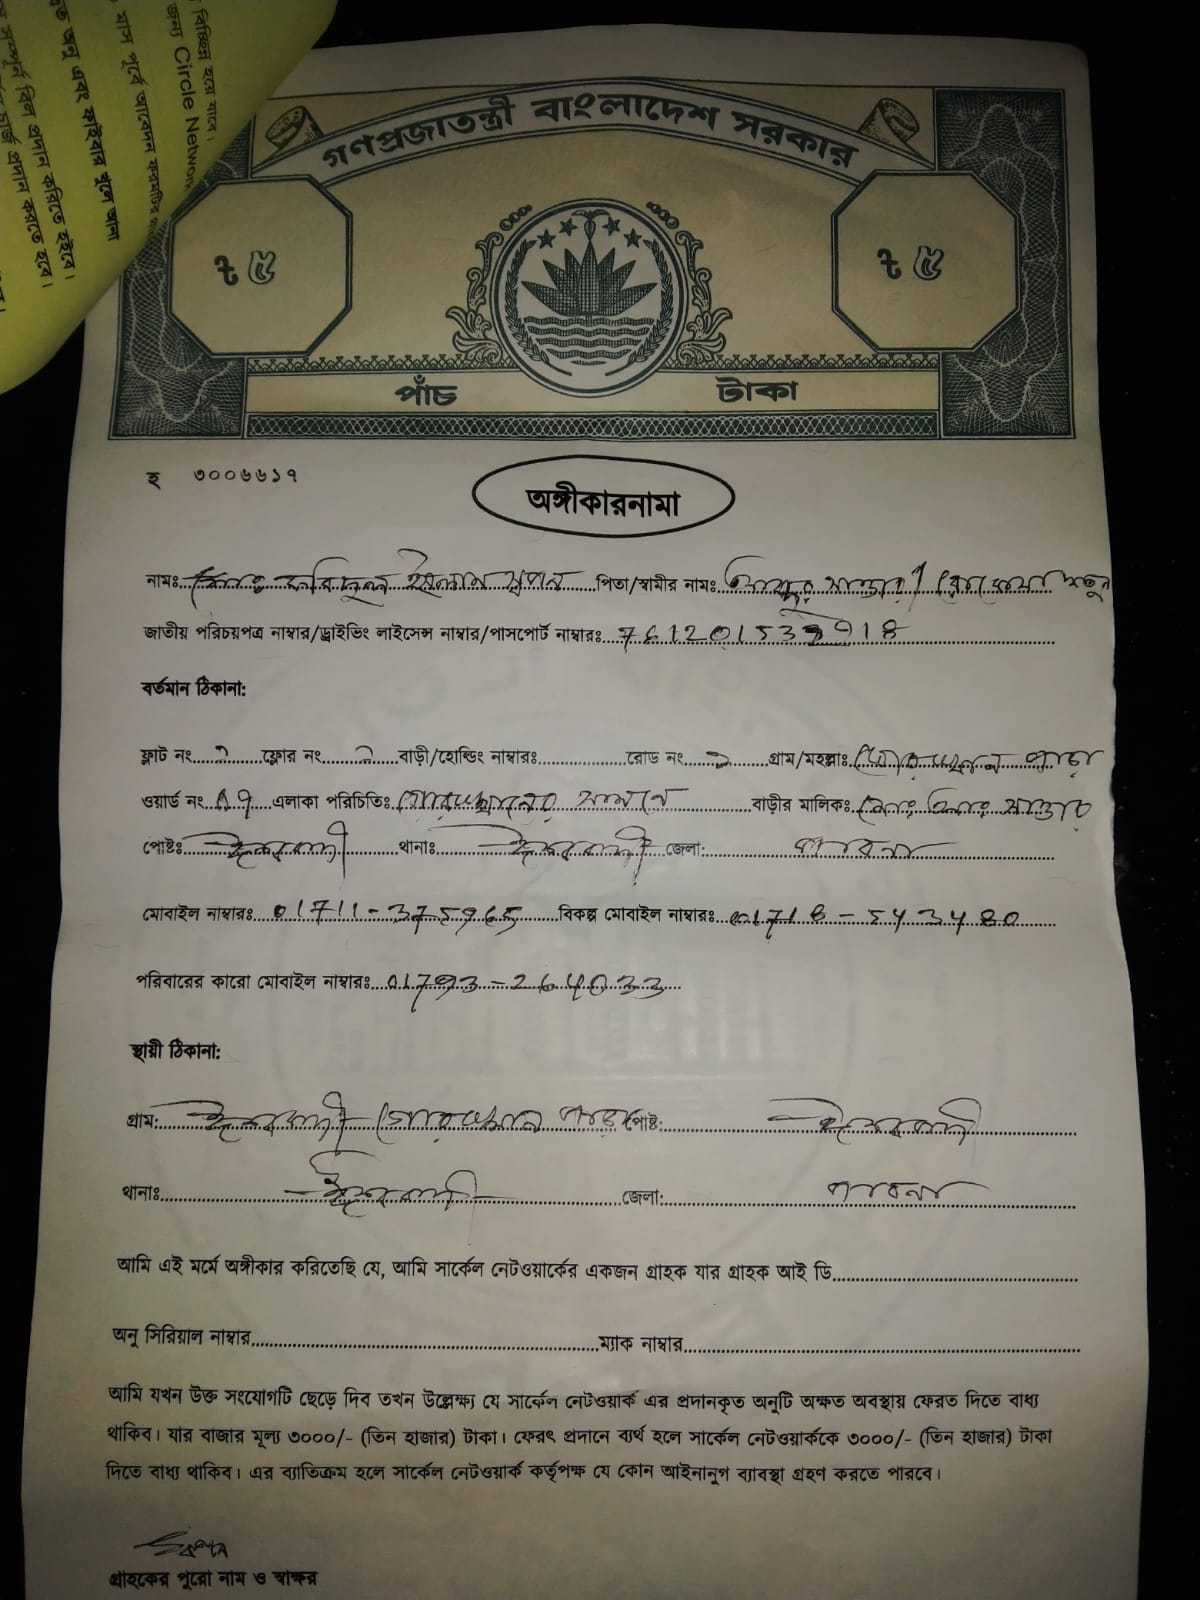 বিচ্ছিন্ন হয়ে যাবে।
জন্য Circle Network
মাস পূর্বে আবেদন করা
অনু এবং ফাইবার খুলে আনা
সম্পূর্ণ বিল প্রদান করিতে হইবে।
চার্জ প্রদান করতে হবে।
গণপ্রজাতন্ত্রী বাংলাদেশ সরকার
৳ ৫ ৳ ৫
পাঁচ টাকা
হ ৩০০৬৬১৭
অঙ্গীকারনামা
নামঃ মোঃ ফরিদুল ইসলাম স্বপন পিতা/স্বামীর নামঃ
জাতীয় পরিচয়পত্র নাম্বার/ড্রাইভিং লাইসেন্স নাম্বার/পাসপোর্ট নাম্বারঃ
বর্তমান ঠিকানা:
ফ্লাট নং ফ্লোর নং বাড়ী/হোল্ডিং নাম্বারঃ রোড নং গ্রাম/মহল্লাঃ গোরস্থান পাড়া
ওয়ার্ড নং এলাকা পরিচিতিঃ গোরস্থানের সামনে বাড়ীর মালিকঃ
পোষ্টঃ ঈশ্বরদী থানাঃ ঈশ্বরদী জেলা: পাবনা
মোবাইল নাম্বারঃ 01711-375965 বিকল্প মোবাইল নাম্বারঃ
পরিবারের কারো মোবাইল নাম্বারঃ 01793-264033
স্থায়ী ঠিকানা:
গ্রাম: ঈশ্বরদী গোরস্থান পাড়া পোষ্ট: ঈশ্বরদী
থানাঃ ঈশ্বরদী জেলা: পাবনা
আমি এই মর্মে অঙ্গীকার করিতেছি যে, আমি সার্কেল নেটওয়ার্কের একজন গ্রাহক যার গ্রাহক আই ডি
অনু সিরিয়াল নাম্বার ম্যাক নাম্বার
আমি যখন উক্ত সংযোগটি ছেড়ে দিব তখন উল্লেক্ষ্য যে সার্কেল নেটওয়ার্ক এর প্রদানকৃত অনুটি অক্ষত অবস্থায় ফেরত দিতে বাধ্য
থাকিব। যার বাজার মূল্য ৩০০০/- (তিন হাজার) টাকা। ফেরৎ প্রদানে ব্যর্থ হলে সার্কেল নেটওয়ার্ককে ৩০০০/- (তিন হাজার) টাকা
দিতে বাধ্য থাকিব। এর ব্যাতিক্রম হলে সার্কেল নেটওয়ার্ক কর্তৃপক্ষ যে কোন আইনানুগ ব্যাবস্থা গ্রহণ করতে পারবে।
গ্রাহকের পুরো নাম ও স্বাক্ষর